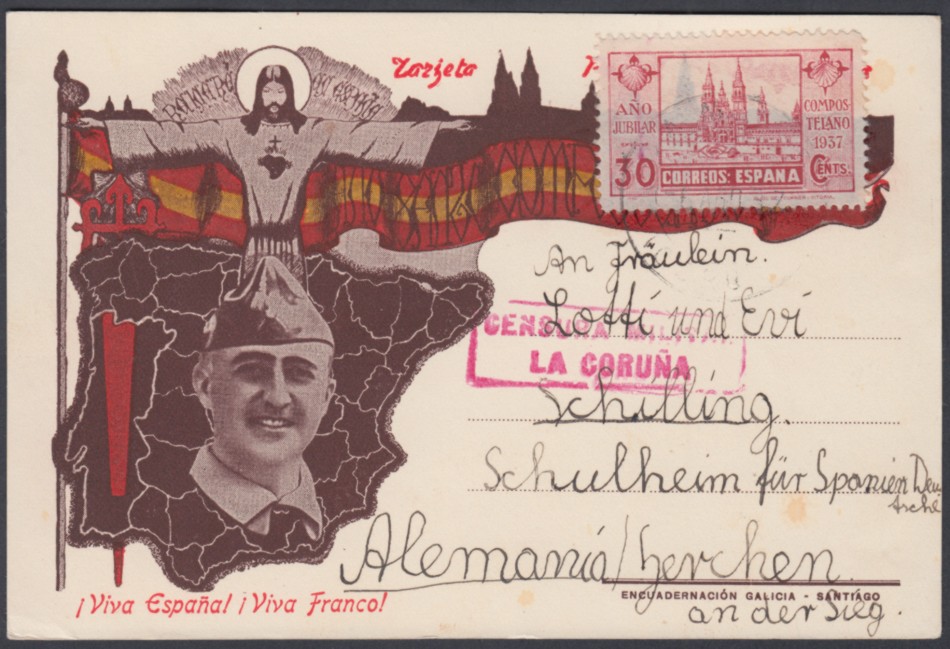 REINARÉ EN ESPAÑA
Tarjeta
AÑO JUBILAR
COMPOSTELANO 1937
30 CORREOS: ESPAÑA Cents.
An Fräulein.
Lotti und Evi
CENSURA MILITAR
LA CORUÑA
Schilling.
Schulheim für Spanien Deu
tsche
Alemania/Herchen
ENCUADERNACIÓN GALICIA - SANTIÁGO
an der Sieg.
¡Viva España! ¡Viva Franco!